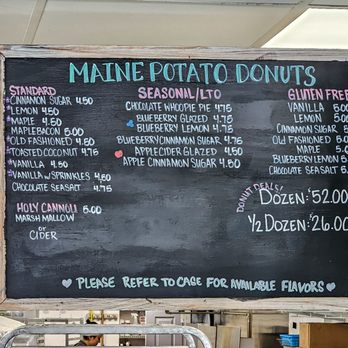 MAINE POTATO DONUTS
STANDARD
CINNAMON SUGAR 4.50
LEMON 4.50
MAPLE 4.50
MAPLEBACON 5.00
OLD FASHIONED 4.50
TOASTED COCONUT 4.75
VANILLA 4.50
VANILLA W/SPRINKLES 4.50
CHOCOLATE SEASALT 4.75
HOLY CANNOLI 5.00
MARSHMALLOW
OR
CIDER
SEASONAL/LTO
CHOCOLATE WHOOPIE PIE 4.75
BLUEBERRY GLAZED 4.75
BLUEBERRY LEMON 4.75
BLUEBERRY CINNAMON SUGAR 4.75
APPLECIDER GLAZED 4.50
APPLE CINNAMON SUGAR 4.50
GLUTEN FREE
VANILLA 5.00
LEMON 5.00
CINNAMON SUGAR
OLD FASHIONED 5
MAPLE 5
BLUEBERRY LEMON 5
CHOCOLATE SEASALT 5
DONUT DEALS!
DOZEN: $52.00
1/2 DOZEN: $26.00
PLEASE REFER TO CASE FOR AVAILABLE FLAVORS